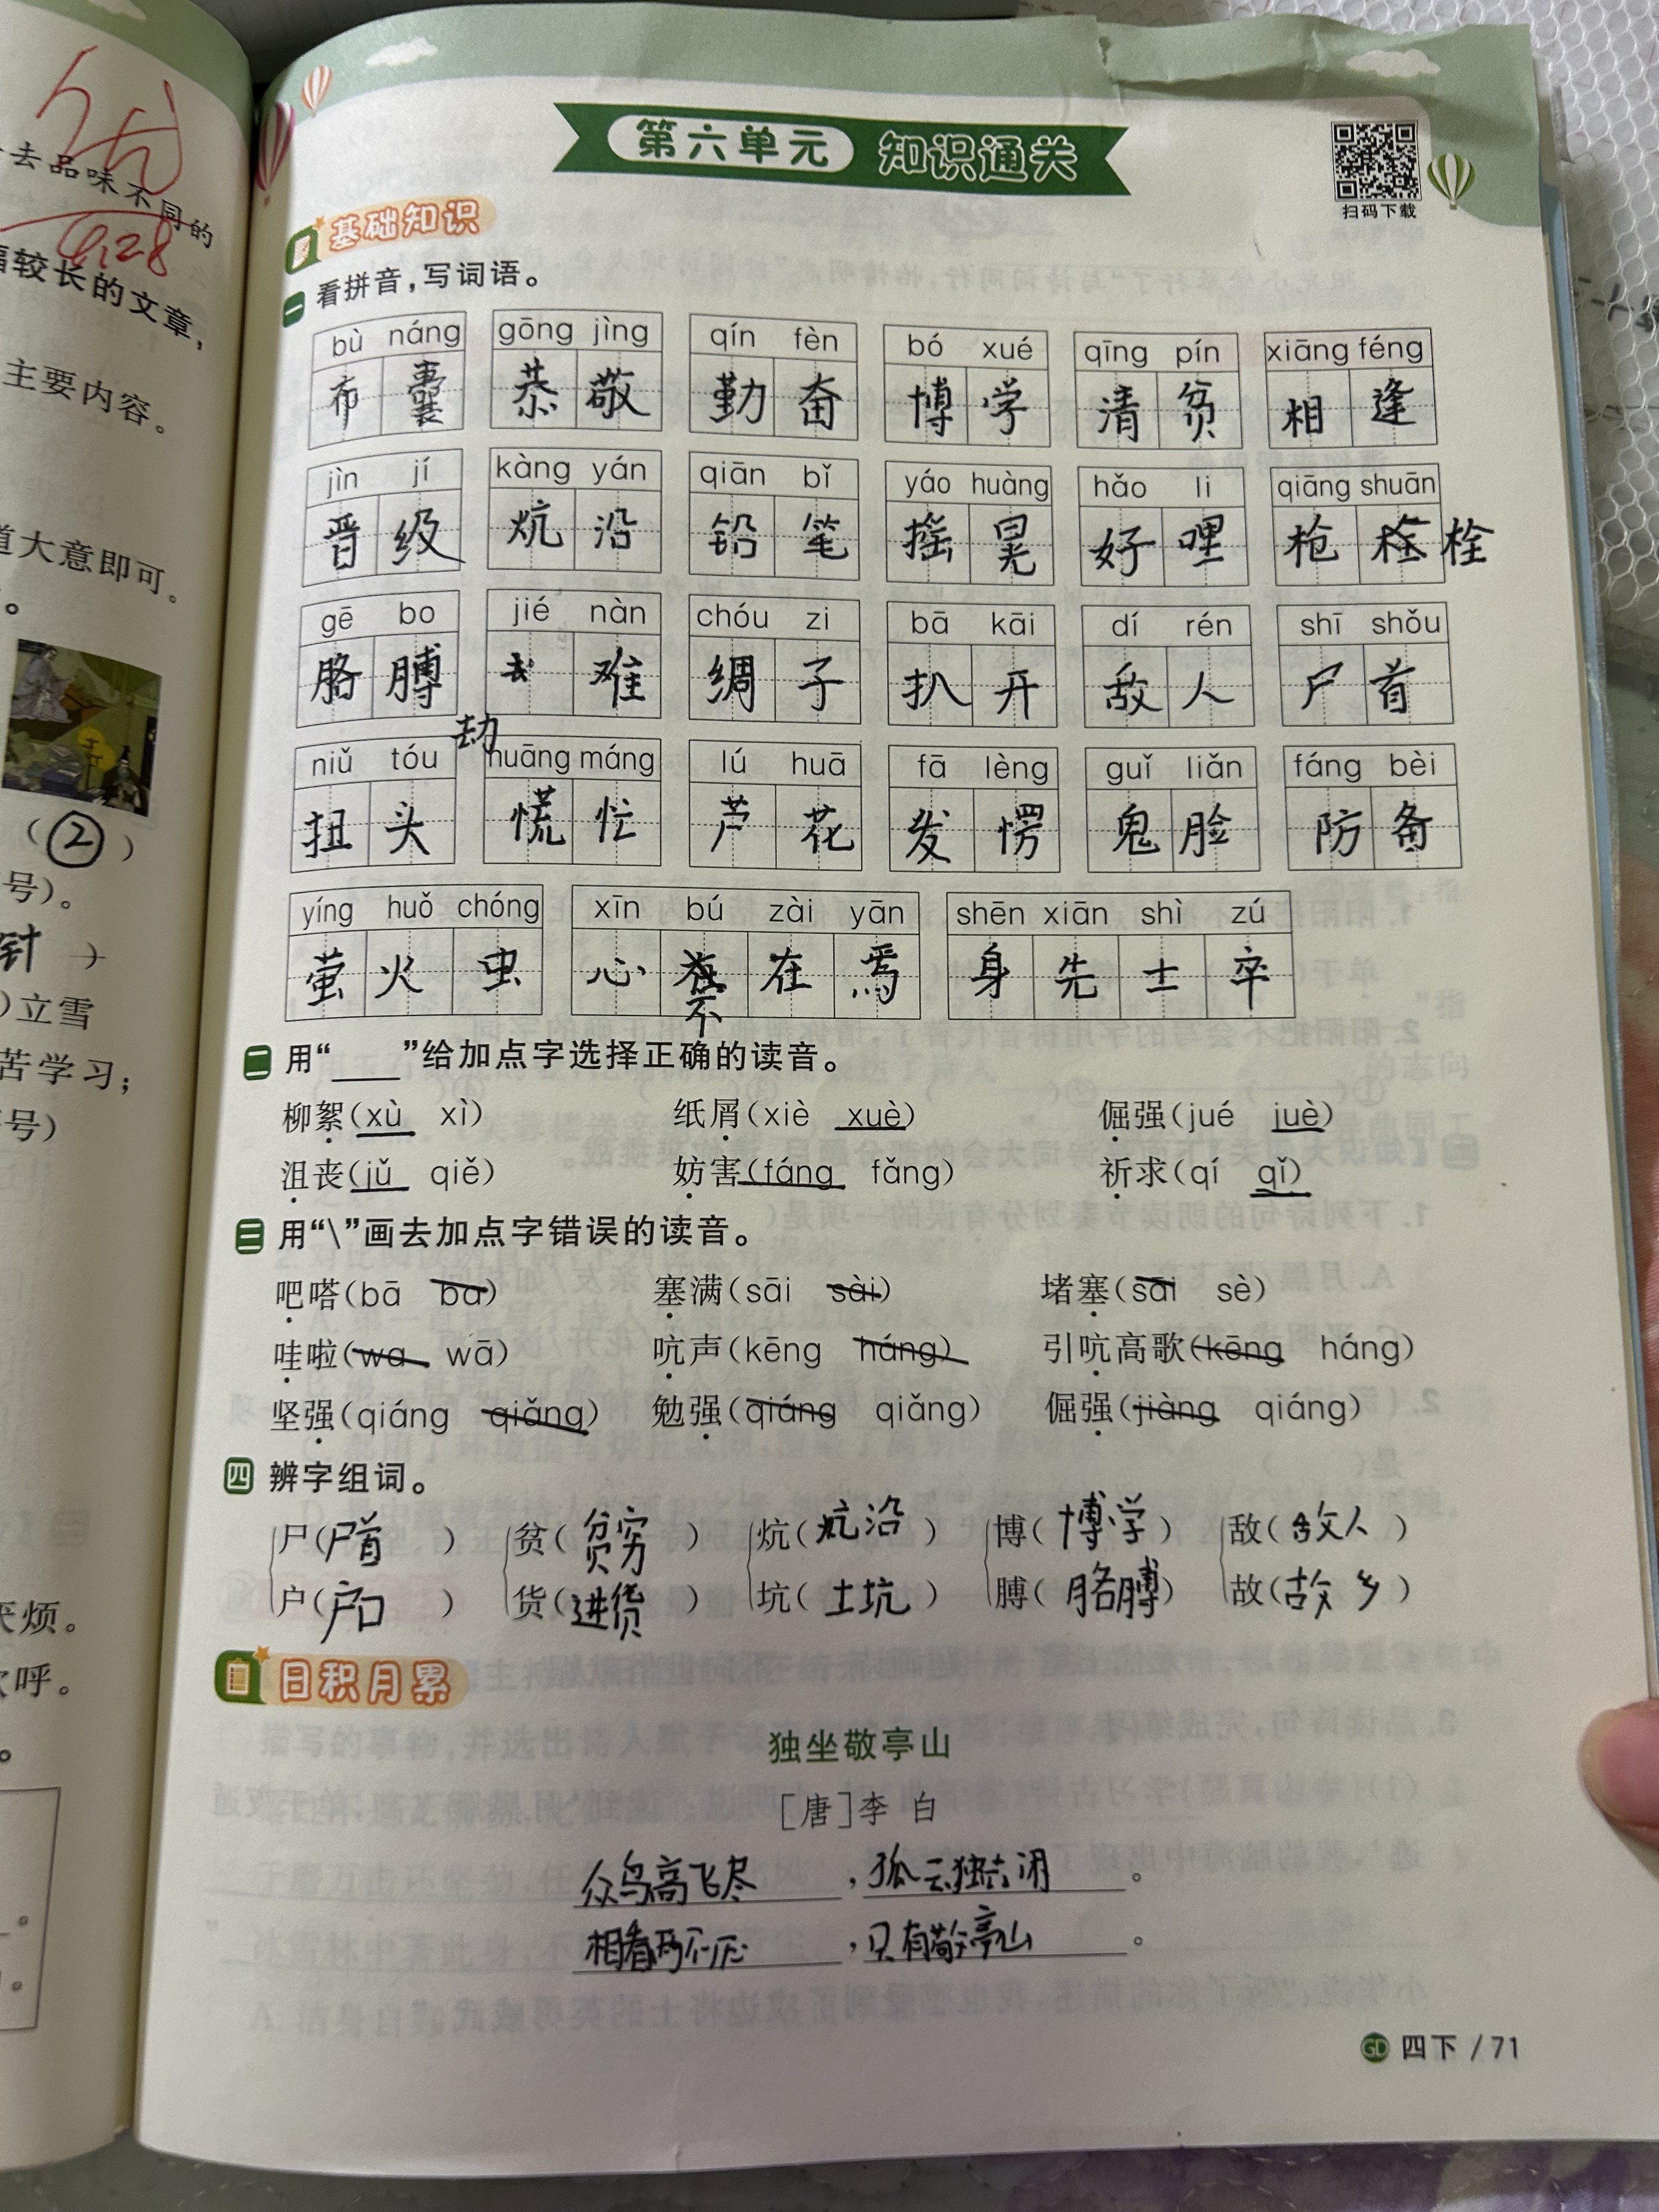 去品味不同的
4.28
幅较长的文章,
主要内容。
道大意即可。
(②)
号)。
针)
)立雪
苦学习;
号)
厌烦。
欢呼。
第六单元 知识通关
扫码下载
基础知识
一 看拼音,写词语。
bù náng gōng jìng qín fèn bó xué qīng pín xiāng féng
布囊 恭敬 勤奋 博学 清贫 相逢
jìn jí kàng yán qiān bǐ yáo huàng hǎo li qiāng shuān
晋级 炕沿 铅笔 摇晃 好哩 枪栓
gē bo jié nàn chóu zi bā kāi dí rén shī shǒu
胳膊 劫难 绸子 扒开 敌人 尸首
niǔ tóu huāng máng lú huā fā lèng guǐ liǎn fáng bèi
扭头 慌忙 芦花 发愣 鬼脸 防备
yíng huǒ chóng xīn bú zài yān shēn xiān shì zú
萤火虫 心不在焉 身先士卒
二 用“____”给加点字选择正确的读音。
柳絮(xù xì) 纸屑(xiè xuè) 倔强(jué juè)
沮丧(jǔ qiě) 妨害(fáng fǎng) 祈求(qí qǐ)
三 用“\”画去加点字错误的读音。
吧嗒(bā ba) 塞满(sāi sài) 堵塞(sāi sè)
哇啦(wa wā) 吭声(kēng háng) 引吭高歌(kēng háng)
坚强(qiáng qiǎng) 勉强(qiáng qiǎng) 倔强(jiàng qiáng)
四 辨字组词。
尸(尸首) 贫(贫穷) 炕(炕沿) 博(博学) 敌(敌人)
户(户口) 货(进货) 坑(土坑) 膊(胳膊) 故(故乡)
日积月累
独坐敬亭山
[唐]李 白
众鸟高飞尽,孤云独去闲。
相看两不厌,只有敬亭山。
GD 四下 / 71